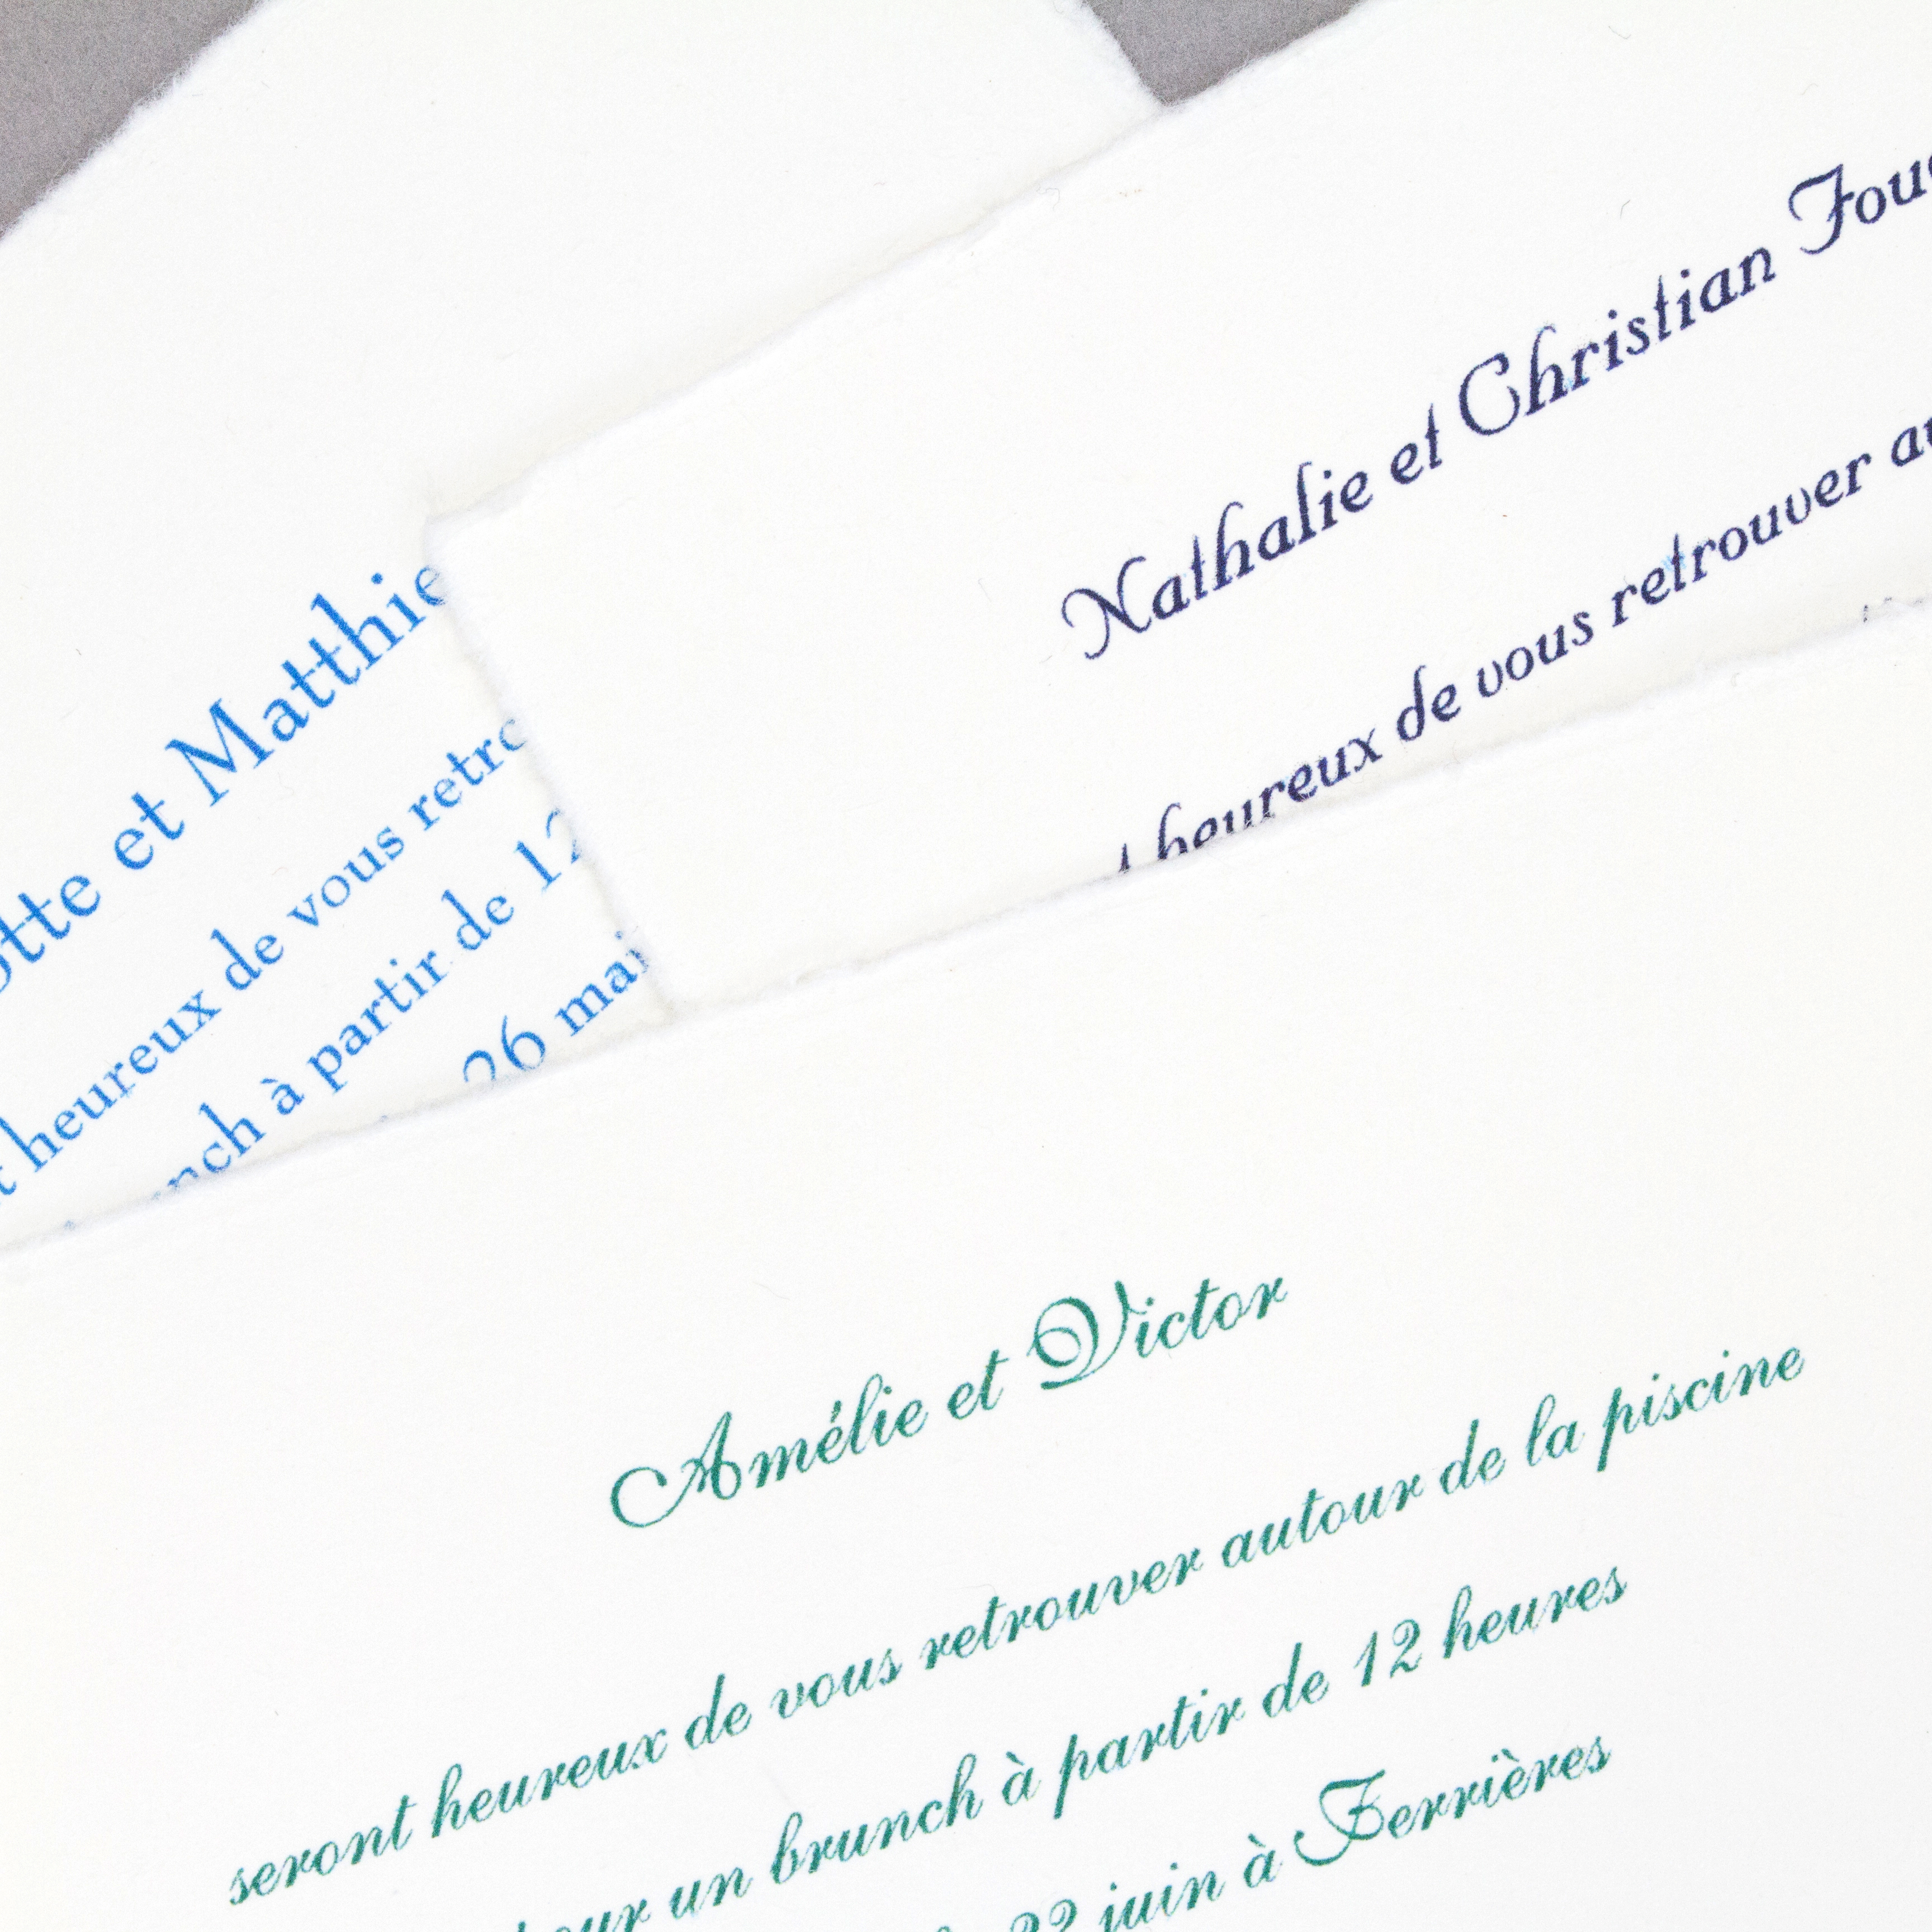 et Matthie
heureux de vous retro
à partir de 12
26 mai
Nathalie et Christian Fou
heureux de vous retrouver au
Amélie et Victor
seront heureux de vous retrouver autour de la piscine
pour un brunch à partir de 12 heures
22 juin à Ferrières